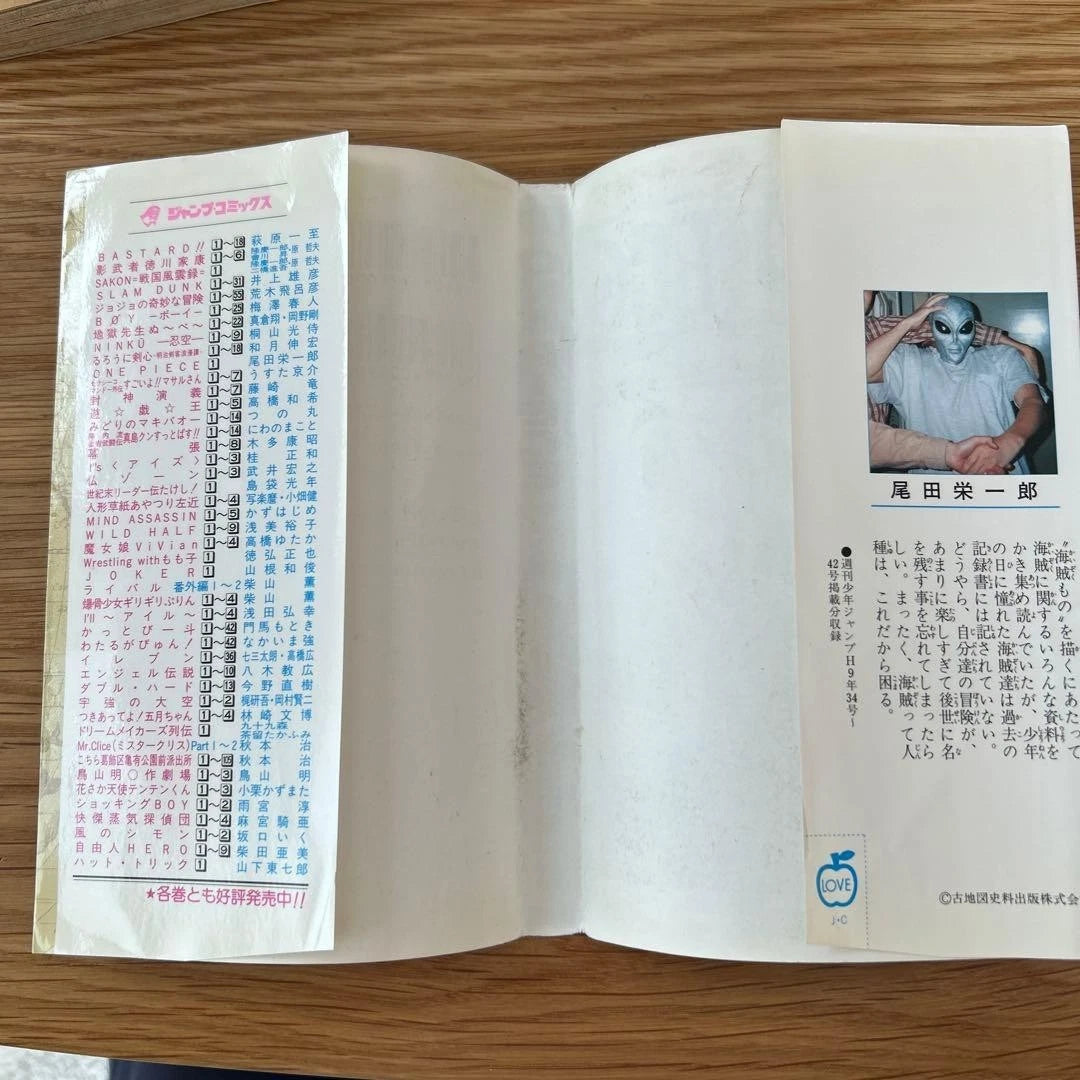 ジャンプ・コミックス
BASTARD!! 1〜18 萩原一至
影武者徳川家康 1〜6 隆慶一郎・原哲夫 會川昇
SAKON=戦国風雲録= 1 隆慶一郎・原哲夫 二橋進吾
SLAM DUNK 1〜31 井上雄彦
ジョジョの奇妙な冒険 1〜55 荒木飛呂彦
BØY −ボーイ− 1〜25 梅澤春人
地獄先生ぬ〜べ〜 1〜22 真倉翔・岡野剛
NINKŪ −忍空− 1〜9 桐山光侍
るろうに剣心-明治剣客浪漫譚- 1〜18 和月伸宏
ONE PIECE 1 尾田栄一郎
すごいよ!!マサルさん 1〜7 うすた京介
封神演義 1〜7 藤崎竜
遊☆戯☆王 1〜5 高橋和希
みどりのマキバオー 1〜14 つの丸
真島クンすっとばす!! 1〜14 にわのまこと
幕張 1〜8 木多康昭
I"s〈アイズ〉 1〜3 桂正和
仏ゾーン 1〜3 武井宏之
世紀末リーダー伝たけし! 1 島袋光年
人形草紙あやつり左近 1〜4 写楽麿・小畑健
MIND ASSASSIN 1〜5 かずはじめ
WILD HALF 1〜9 浅美裕子
魔女娘ViVian 1〜4 高橋ゆたか
Wrestling withもも子 1 徳弘正也
JOKER 1 山根和俊
ライバル 番外編1〜2 柴山薫
爆骨少女ギリギリぷりん 1〜4 柴山薫
I'll 〜アイル〜 1〜4 浅田弘幸
かっとび一斗 1〜42 門馬もとき
わたるがぴゅん! 1〜42 なかいま強
イレブン 1〜36 七三太朗・高橋広
エンジェル伝説 1〜10 八木教広
ダブル・ハード 1〜13 今野直樹
宇強の大空 1〜2 梶研吾・岡村賢二
つきあってよ!五月ちゃん 1〜4 林崎文博
ドリームメイカーズ列伝 1 九十九森 茶留たかふみ
Mr.Clice(ミスタークリス) Part 1〜2 秋本治
こちら葛飾区亀有公園前派出所 秋本治
鳥山明○作劇場 1〜3 鳥山明
花さか天使テンテンくん 1〜3 小栗かずまた
ショッキングBOY 1〜2 雨宮淳
快傑蒸気探偵団 1〜4 麻宮騎亜
風のシモン 1〜2 坂口いく
自由人HERO 1〜9 柴田亜美
ハット・トリック 1 山下東七郎
★各巻とも好評発売中!!
尾田栄一郎
〝海賊もの〟を描くにあたって
海賊に関するいろんな資料を
かき集め読んでいたが、少年
の日に憧れた海賊達は過去の
記録書には記されていない。
どうやら、自分達の冒険が、
あまりに楽しすぎて後世に名
を残す事を忘れてしまったら
しい。まったく、海賊って人
種は、これだから困る。
●週刊少年ジャンプH9年34号〜
42号掲載分収録
LOVE
J・C
©古地図史料出版株式会